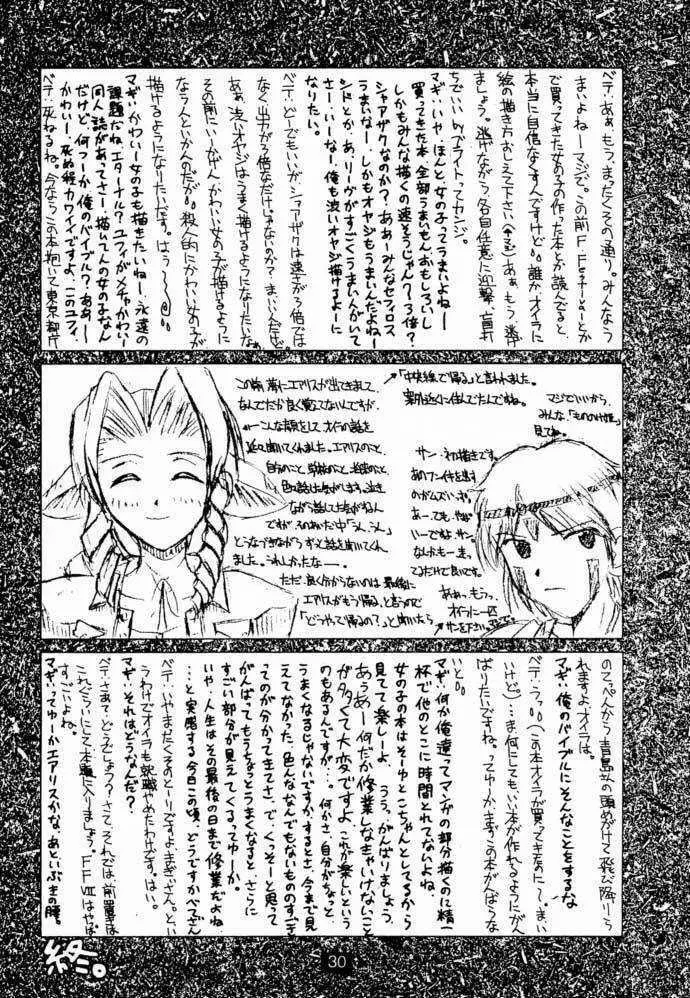 ベテ：あぁ、もう、まったくその通り。みんなう
まいよねーマジで。この前FFestivalとか
で買ってきた女の子の作った本とか読んでると、
本当に自信なくすんですけど。誰かオイラに
絵の描き方おしえて下さい(キュ)あぁ、もう、
ましょう。逃げながら各自任意に迎撃、盲打
ちでいいbyブライトってカンジ。
マギ：いや、ほんと女の子ってうまいよねー
買ってきた本、全部うまいもん、おもしろいし
しかもみんな描くの速そうじゃん？3倍？
シャアザクなのか？ああーみんなセフィロス、
うまいなー、しかもオヤジもうまいんだよねー
シドとか、あ、リーヴがすごくうまい人がいて
さー…いーなー、俺も渋いオヤジ描けるよーに
なりたい。
ベテ：どーでもいいが、シャアザクは速さが3倍では
なく、出力が3倍なだけじゃないのか？まぁいいんだけど。
あぁ、渋いオヤジはうまく描けるようになりたいなぁ、
その前にいーかげん、かわいい女の子が描けるように
ならんといかんのだが。殺人的にかわいい女の子が
描けるようになりたいです。はう〜
マギ：かわいー女の子も描きたいねー、永遠の
課題だね。エターナル？ユフィがメチャかわいー
同人誌があってさー、描いてんの女の子なん
だけど、何つーか俺のバイブル？ああー
かわいー、死ぬ程カワイイですよ、このユフィ。
ベテ：死ねるね。今ならこの本抱いて東京都庁
この前、夢にエアリスが出てきまして、
なんでだか良く覚えてないんですが、
←こんな顔をして、オイラの話を
延々聞いてくれました。エアリスのこと、
自分のこと、学校のこと、者達のこと、
色々話した気がします。泣き
ながら話してた気がするん
ですが、そのあいだ中「うん、うん」
とうなづきながら、ずっと話を聞いてくれ
ました。うれしかったなー。
ただ、良く分からないのは、最後に
エアリスがもう帰る、と言うので
「どうやって帰るの？」と聞いたら
「中央線で帰る」と言われました。
案外近くに住んでたんですね。
マジでいいから、
みんな、「もののけ姫」
見てね。
サン・初描きです。
あのフンイ気を出す
のがムズいっす。
あー、でも、やば
いーですね、サン。
なんかもー、
てるだけで良いです。
ああ、もうっ、
オイラに一匹
サンを下さい。
のてっぺんから青島の頭めがけて飛び降りら
れますよ、オイラは。
マギ：俺のバイブルにそんなことをするな
ベテ：うっ。(この本オイラが買ってきたのに…まぁ、い
いけど)…ま、何にしてもいい本が作れるようにがん
ばりたいですね。ってゆーか、まずこの本がんばらな
いと。
マギ：何か俺達ってマンガの部分描くのに精一
杯で他のとこに時間とれてないよね。
女の子の本はそーゆとこちゃんとしてるから
見てて楽しーよ。うう、がんばりましょう。
あうあー何だか修業しなきゃいけないこと
が多くて大変ですよ。これが楽しいという
のもあるんですが…。何かさ、自分がちょっと、
うまくなるじゃないですか、するとさ、今まで見
えてなかった、色んななんでもないものの すごさ
ってのが分かってきてさ。で、くっそーと思って
がんばってもうちょっとうまくなると、さらに
すごい部分が見えてくるってゆーか。
いや、人生はその最後の日まで修業だよね
…と実感する今日この頃、どうですかベテさん
ベテ：いやまったくそのとーりですよ、まぎぃさん。とい
うわけでオイラも就職やめたわけです。はい。
マギ：それはどうなんだ？
ベテ：さぁて、どうでしょう？さて、それでは、前置きは
これぐらいにして本題に入りましょう。FFⅦはやば
すごいよね。
マギ：ってゆーかエアリスかな、あといぶきの瞳。
終。
30